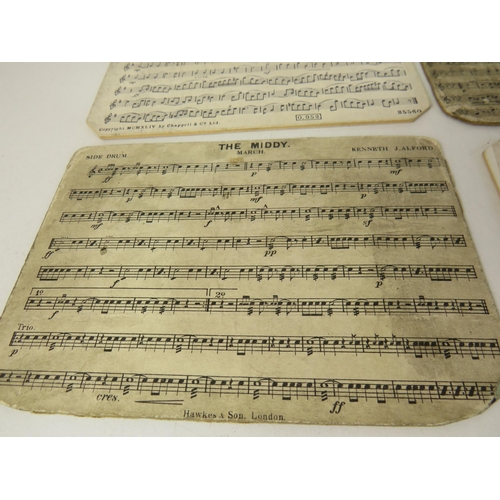 Copyright MCMXLIV by Chappell & Co Ltd.
THE MIDDY.
SIDE DRUM
MARCH.
KENNETH J. ALFORD
ff
p
mf
p
mf
p
mf
p
mf
f
f
mf
ff
pp
f
p
1º
2º
f
Trio.
p
cres.
ff
Hawkes & Son, London.